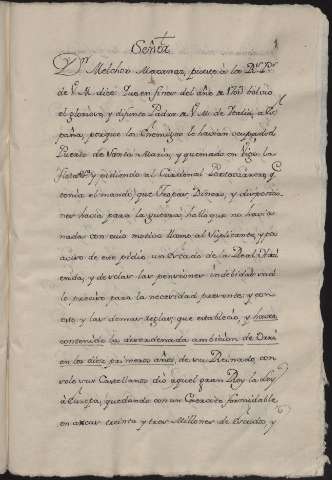 Señor
1
Dn. Melchor Macanaz, puesto à los Rs. Ps.
de V. M. dice: Que en fines del año de 1703 bolvio
el glorioso, y difunto Padre de V. M. de Italia, a Es-
paña, porque los Enemigos le havian ocupado el
Puerto de Santa Maria, y quemado en Vigo la
Flota, y pidiendo al Cardenal Portocarrero q.
tenia el mando, que Tropas, Dinero, y disposicio-
nes havia para la guerra, hallo que no havia
nada con cuio motivo llamo al Suplicante, y
de este pidio un Estado de la Real Hazi
enda, y de
lo preciso para la necesidad presente; y con
esto y las demas reglas que establecio, y haver
contenido la desordenada ambicion de
en los diez primeros años, de su Reinado con
solo sus Castellanos dio aquel gran Rey la Ley
à Europa, quedando con un Exercito formidable
en arcas treinta y tres Millones de Escudos y